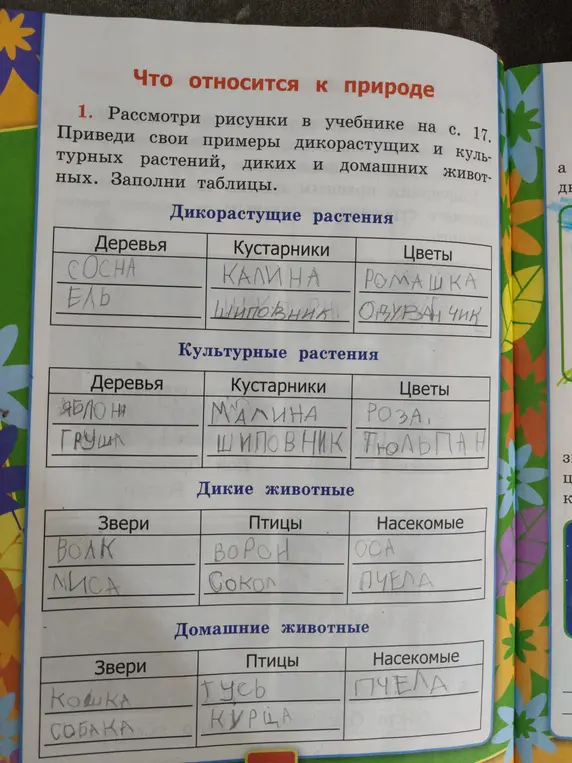 Что относится к природе
1. Рассмотри рисунки в учебнике на с. 17.
Приведи свои примеры дикорастущих и куль-
турных растений, диких и домашних живот-
ных. Заполни таблицы.
Дикорастущие растения
Деревья Кустарники Цветы
СОСНА КАЛИНА РОМАШКА
ЕЛЬ ШИПОВНИК ОДУВАНЧИК
Культурные растения
Деревья Кустарники Цветы
ЯБЛОНЯ МАЛИНА РОЗА,
ГРУША ШИПОВНИК ТЮЛЬПАН
Дикие животные
Звери Птицы Насекомые
ВОЛК ВОРОН ОСА
ЛИСА СОКОЛ ПЧЕЛА
Домашние животные
Звери Птицы Насекомые
КОШКА ГУСЬ ПЧЕЛА
СОБАКА КУРЦА